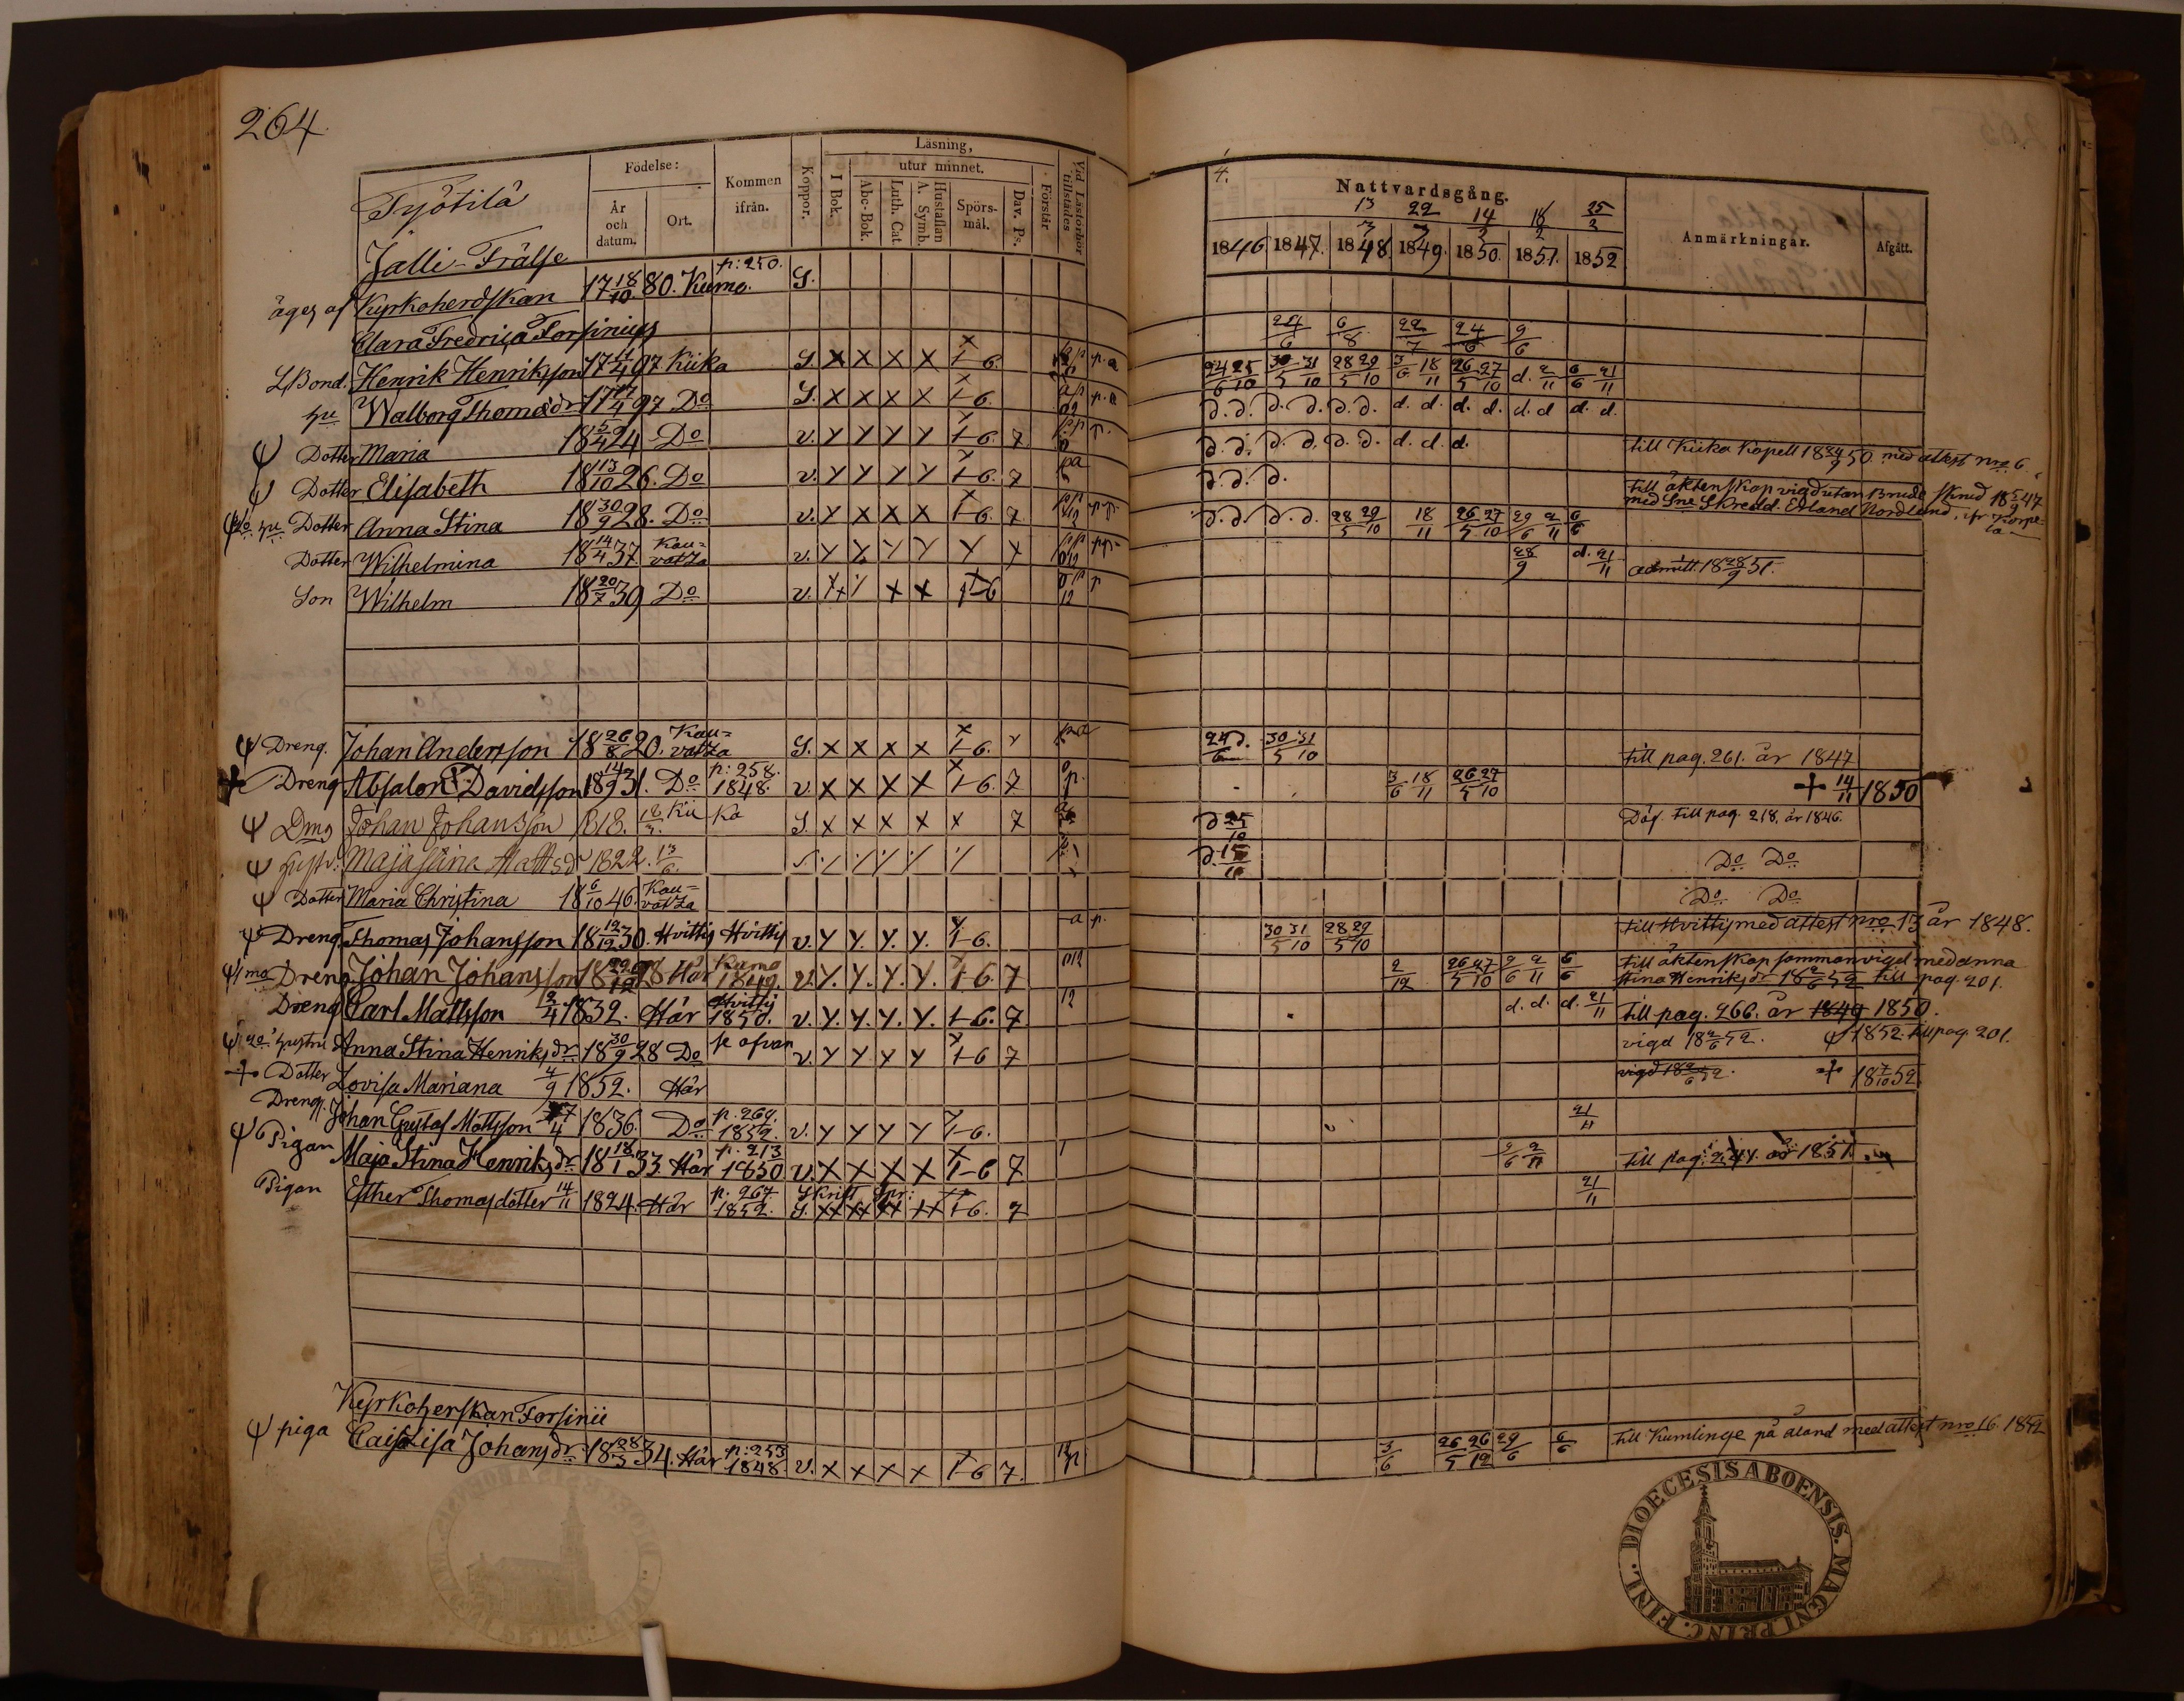 264.
Työtilä
Jalli-Frälse
Födelse:
År och datum.
Ort.
Kommen ifrån.
Koppor.
Läsning,
utur minnet.
I Bok.
Abc-Bok.
Luth. Cat.
Hustaflan A. Symb.
Spörsmål.
Dav. Ps.
Förstår
Vid Läsförhör tillstädes
4.
Nattvardsgång.
13/3 22/3 14/3 18/2 25/3
1846 1847. 1848. 1849. 1850. 1851. 1852
Anmärkningar.
Afgått.
äges af Kyrkoherdskan 17 18/10 80. Kumo. p: 250. S.
Clara Fredrica Forsinius 24/6 6/8 22/7 24/6 9/6
L Bond. Henrik Henriksson 97 Kiika S. x x x x 1-6. p.a 24/6 25/10 30/5 31/10 28/5 29/10 3/6 18/11 26/5 27/10 d. 2/11 6/6 21/11
hu Walborg Thomasdr 97 Do S. x x x x 1-6. p.a d. d. d. d. d. d. d. d. d. d. d. d d. d.
Ψ Dotter Maria 18 5/4 24 Do v. y y y y 1-6. 7 p. d. d. d. d. d. d. d. d. d. till Kiika Kapell 18 24/9 50 med attest nro 6.
Ψ Dotter Elisabeth 18 13/10 26. Do v. y y y y 1-6. 7 pa d. d. d. till äktenskap vigd utan Brude
Dotter Anna Stina 18 30/9 28. Do v. y x x x 1-6. 7 p.p. d. d. d. d. 28/5 29/10 18/11 26/5 27/10 29/6 2/11 6/6 med Nordlund
Dotter Wilhelmina 18 14/4 37 Kauvatza v. y y y y y y 28/9 d. 21/11 admitt. 18 28/9 51.
Son Wilhelm 18 20/7 39 Do v. x x 1-6 p 12
Ψ Dreng. Johan Andersson 18 26/8 20. Kauvatza S. x x x x 1-6. pa 24/6 d. 30/5 31/10 till pag. 261. år 1847
+ Dreng Absalon Davidsson 18 14/9 31. Do p: 258. 1848. v. x x x x 1-6. 7 p. 3/6 18/11 26/5 27/10 + 14/11 1850
Ψ Dräng Johan Johansson 1818. 18/3. Kiika S. x x x x x 7 d 25/10 till pag. 218. år 1846.
Ψ hustr. Maja Stina Mattsdr 1822. 13/6. Do Do
Ψ Dotter Maria Christina 18 6/10 46. Kauvatza Do Do
Ψ Dreng. Thomas Johansson 18 12/12 30. Hvittis Hvittis v. y y. y. y. 1-6. a p. 30/5 31/10 28/5 29/10 till Hvittis med attest nro 13 år 1848.
Dreng Johan Johansson 28 Här Kumo 1849. v. y. y. y. y. 1-6. 7 2/12 26/5 27/10 2/6 2/11 6/6 till äktenskap samman vigd med Anna
Stina Henriksdr 18 2/6 52 till pag. 201.
Dreng Carl Mattsson 2/4 1832. Här Hvittis 1850. v. y. y. y. y. 1-6. 7 12 d. d. d. 21/11 till pag. 266. år 1849 1850.
hustru Anna Stina Henriksdr 18 30/9 28 Do se ofvan v. y y y y 1-6 7 vigd 18 2/6 52. Ψ 1852. till pag. 201.
+ Dotter Lovisa Mariana 4/9 1852. Här vigd 18 2/6 52. + 18 7/10 52.
Dreng. Johan Gustaf Mattsson 1836. Do 1852. v. y y y y 1-6. 21/11
Ψ Pigan Maja Stina Henriksdr 18 18/1 33. Här p. 213 1850 v. x x x x 1-6 7 2/6 2/11 till pag. 1851
Pigan Esther Thomasdotter 14/11 1824. Här p. 267. 1852. S. xx xx xx xx 1-6. 7 21/11
Kyrkoherskan Forsinii
Ψ piga Caisa Lisa Johansdr 18 28/3 34. Här p: 253 1848 v. x x x x 1-6 7. 3/6 26/5 26/12 29/6 6/6 till Kumlinge på Åland med attest nro 16. 1852
DIOECESIS ABOENSIS. MAGNI PRINC. FINL.